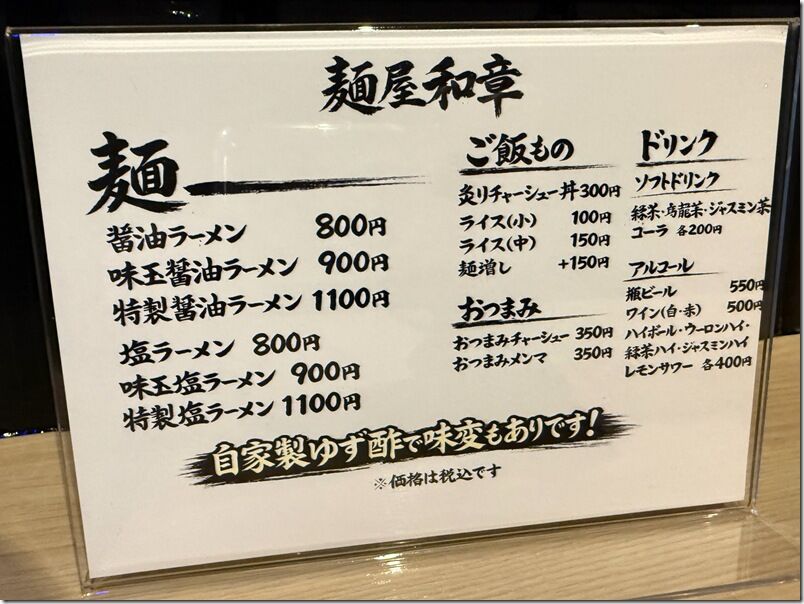 麺屋和章
麺
醤油ラーメン 800円
味玉醤油ラーメン 900円
特製醤油ラーメン 1100円
塩ラーメン 800円
味玉塩ラーメン 900円
特製塩ラーメン 1100円
ご飯もの
炙りチャーシュー丼 300円
ライス(小) 100円
ライス(中) 150円
麺増し +150円
おつまみ
おつまみチャーシュー 350円
おつまみメンマ 350円
ドリンク
ソフトドリンク
緑茶・烏龍茶・ジャスミン茶
コーラ 各200円
アルコール
瓶ビール 550円
ワイン(白・赤) 500円
ハイボール・ウーロンハイ・
緑茶ハイ・ジャスミンハイ
レモンサワー 各400円
自家製ゆず酢で味変もありです!
※価格は税込です